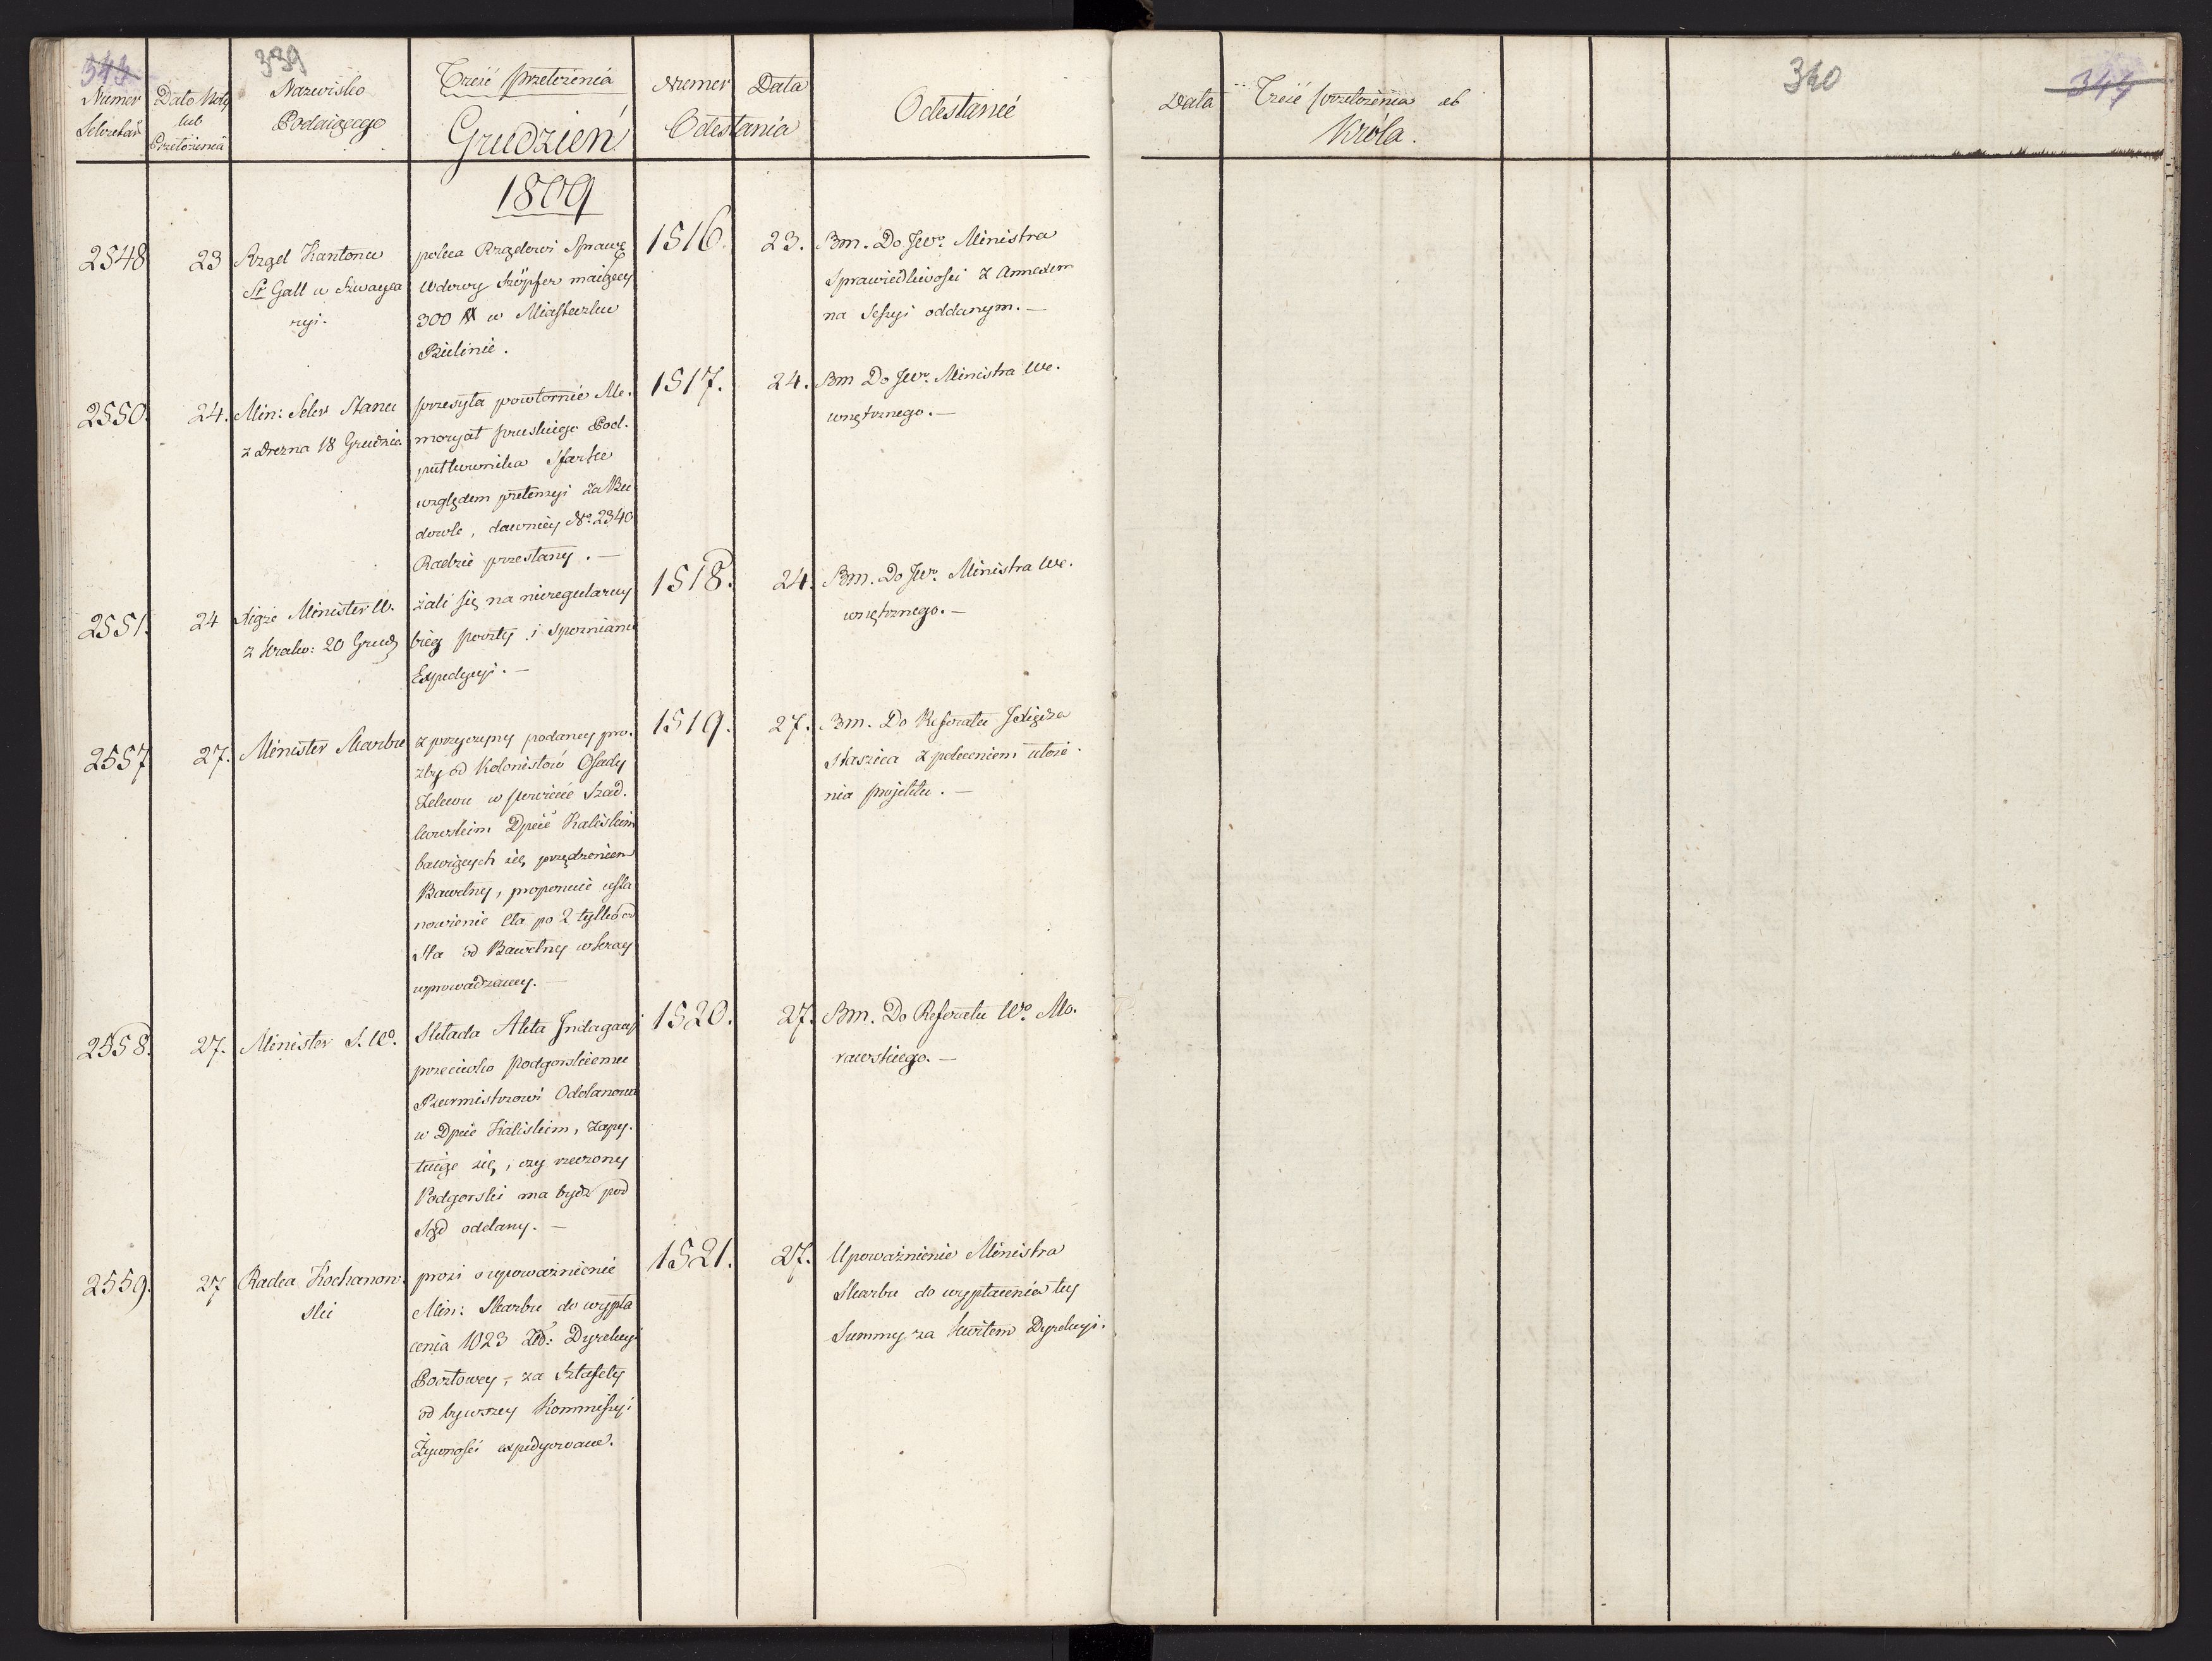 343
339
Numer
Sekretar:
Data Noty
lub
Przełożenia
Nazwisko
Podaiącego
Treść przełożenia
Grudzień
1809
Numer
Data
Odesłania
Odesłanie
2548
23
Rząd Kantonu
St Gall w Szwayca
ryi.
poleca Rządowi Sprawę
Wdowy Szöpfer maiącey
300 # w Miasteczku
Bielinie.
1516.
23.
Bm. Do JWo. Ministra
Sprawiedliwości z Annexem
na Sessyi oddanym. —
2550.
24.
Min: Sekr Stanu
z Drezna 18 Grudnia
przesyła powtórnie Me.
moryał pruskiego Pod.
pułkownika
względem pretensyi za Bu
dowle, dawniey No. 2340
Radzie przesłany. —
1517.
24.
Bm Do JWo. Ministra We.
wnętrznego. —
2551.
24
Tegże Minister W.
z Krako: 20 Grud
żali się na nieregularny
bieg poczty i spoznianie
Expedycyi. —
1518.
24.
Bm. Do JWo. Ministra We.
wnętrznego. —
2557
27.
Minister Skarbu
z przyczyny podaney pro.
zby od Kolonistów Osady
Zelewu w powiecie Szad.
kowskim Dpcie Kaliskim
bawiących się przędzeniem
Bawełny, proponuie usta
nowienie cła po 2 tylko od
Sta od Bawełny w kray
wprowadzaney. —
1519.
27.
Bm. Do Referatu JXiędza
Staszica z poleceniem ułoże.
nia projektu. —
2558.
27.
Minister S. Wo.
Składa Akta Indagacyi
przeciwko Podgorskiemu
Burmistrzowi Odolanowa
w Dpcie Kaliskim, zapy.
tuiąc się, czy rzeczony
Podgorski ma bydz pod
Sąd oddany. —
1520.
27.
Bm. Do Referatu Wo. Mo.
rawskiego. —
2559.
27
Radca Kochanow.
ski
prosi o upoważnienie
Min: Skarbu do wypła
cenia 1023 Zło: Dyrekcyi
Pocztowey, za Sztafety
od bywszey Kommissyi
Żywności expedyowane.
1521.
27.
Upoważnienie Ministra
Skarbu do wypłacenia tey
Summy za kwitem Dyrekcyi.
340
344
Data
Treść przełożenia ab
Króla.